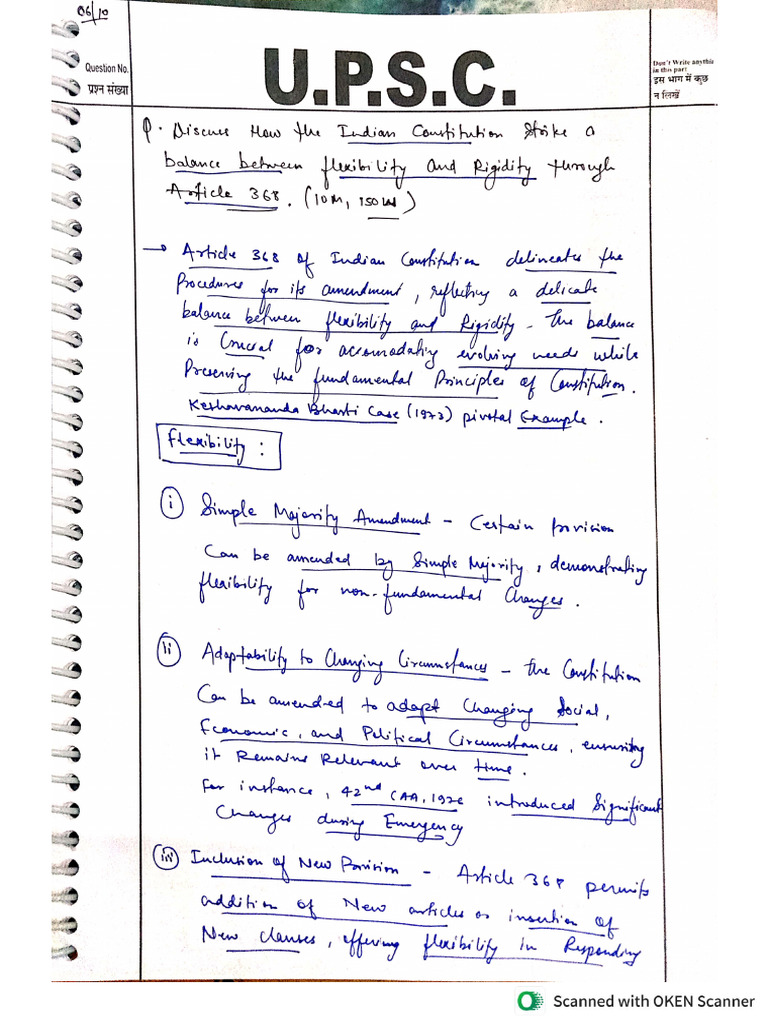 06/10
Question No.
प्रश्न संख्या
U.P.S.C.
Don't Write anythin
in this part
इस भाग में कुछ
न लिखें
Q. Discuss How the Indian Constitution Strike a
balance between flexibility and Rigidity through
Article 368. (10M, 150W)
→ Article 368 of Indian Constitution delineates the
Procedures for its amendment, reflecting a delicate
balance between flexibility and Rigidity. The balance
is Crucial for accomodating evolving needs while
Preserving the fundamental Principles of Constitution.
Keshavananda Bharti Case (1973) pivotal Example.
Flexibility :
(i) Simple Majority Amendment - Certain provision
Can be amended by Simple Majority, demonstrating
flexibility for non-fundamental Changes.
(ii) Adaptability to Changing Circumstances - The Constitution
Can be amended to adapt Changing Social,
Economic, and Political Circumstances, ensuring
it Remains Relevant over time.
For instance, 42nd CAA, 1976 introduced Significant
Changes during Emergency
(iii) Inclusion of New Provision - Article 368 permits
addition of New articles or insertion of
New clauses, offering flexibility in Responding
Scanned with OKEN Scanner